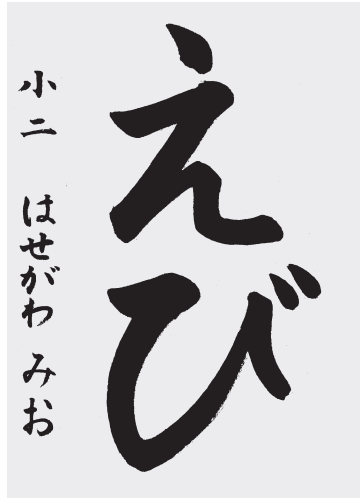 えび
小二 はせがわ みお